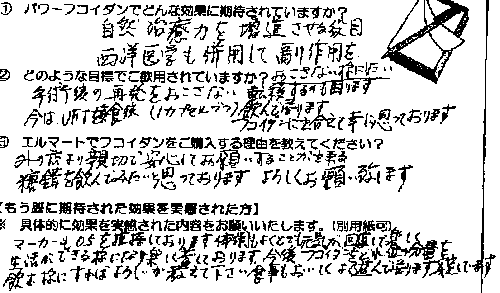 ① パワーフコイダンでどんな効果に期待されていますか?
自然治癒力を増進させる効目
西洋医学も併用して副作用を
② どのような目標でご飲用されていますか? おこさない様にしたい
手術後の再発をおこさない 転移するのも困ります
今は 毎食後(1カプセルづつ)飲んで居ります
フコイダンに出合えて幸に思っております
③ エルマートでフコイダンをご購入する理由を教えてください?
外の店より親切で安心してお願いすることが出来る
糖鎖を飲んでみたいと思っております よろしくお願い致します
【もう既に期待された効果を実感された方】
※ 具体的に効果を実感された内容をお願いいたします。(別用紙可)
マーカーも0.5を維持しております 体調もよくとても元気が回復して楽しく
生活ができる様になり幸に思っております 今後フコイダンをどれ位の分量を
飲む様にすればよろしいか教えて下さい 食事もおいしくよく進んで居ります 感謝しています